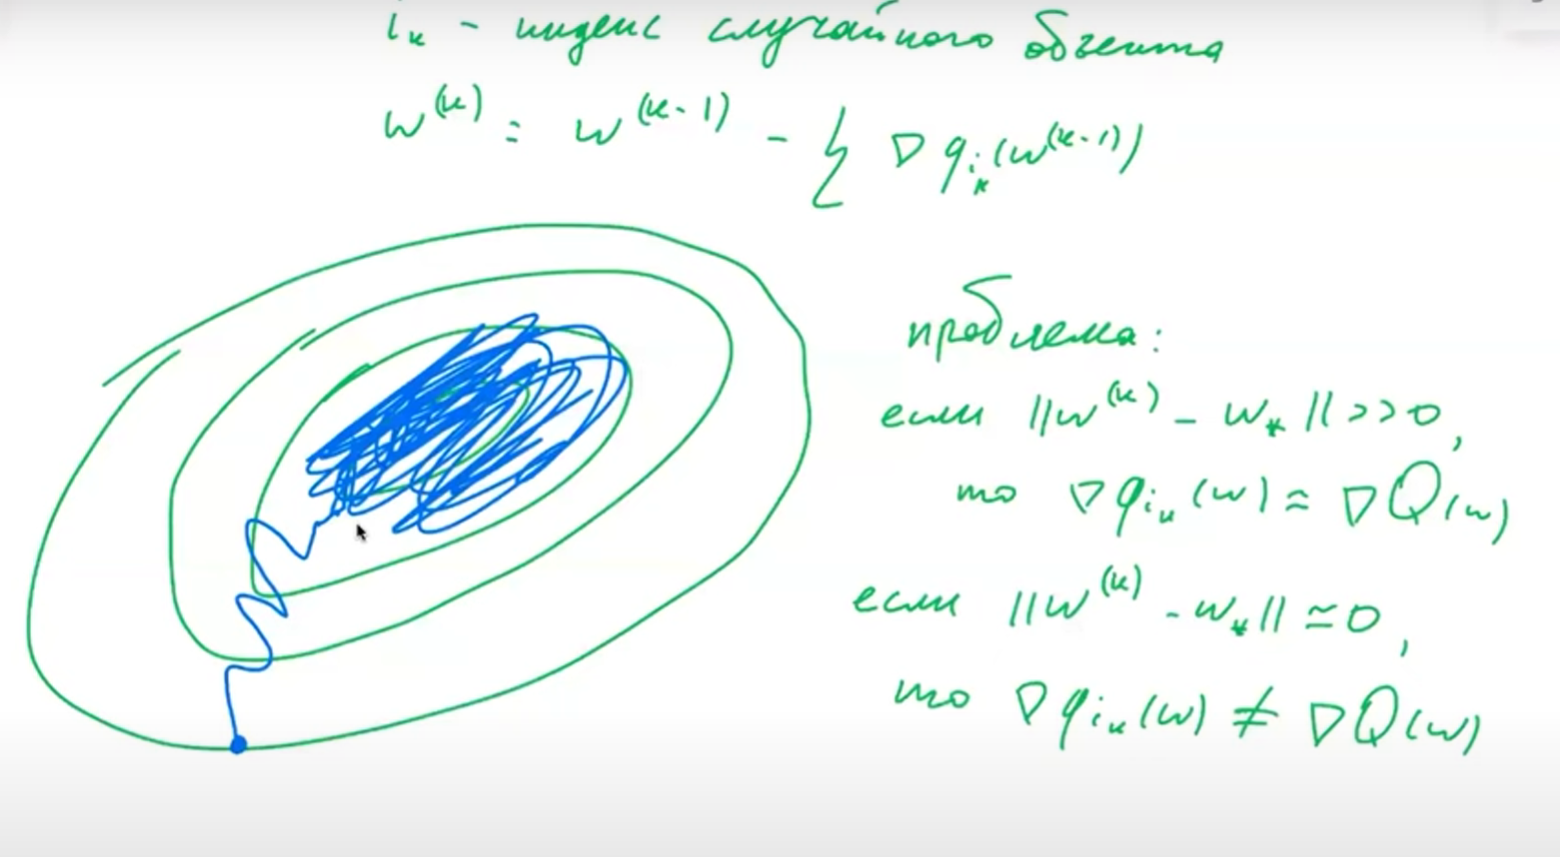 i_k - индекс случайного объекта
w^(k) = w^(k-1) - ξ ∇q_{i_k}(w^(k-1))
проблема:
если ||w^(k) - w_*|| >> 0,
то ∇q_{i_k}(w) ≈ ∇Q(w)
если ||w^(k) - w_*|| ≃ 0,
то ∇q_{i_k}(w) ≠ ∇Q(w)